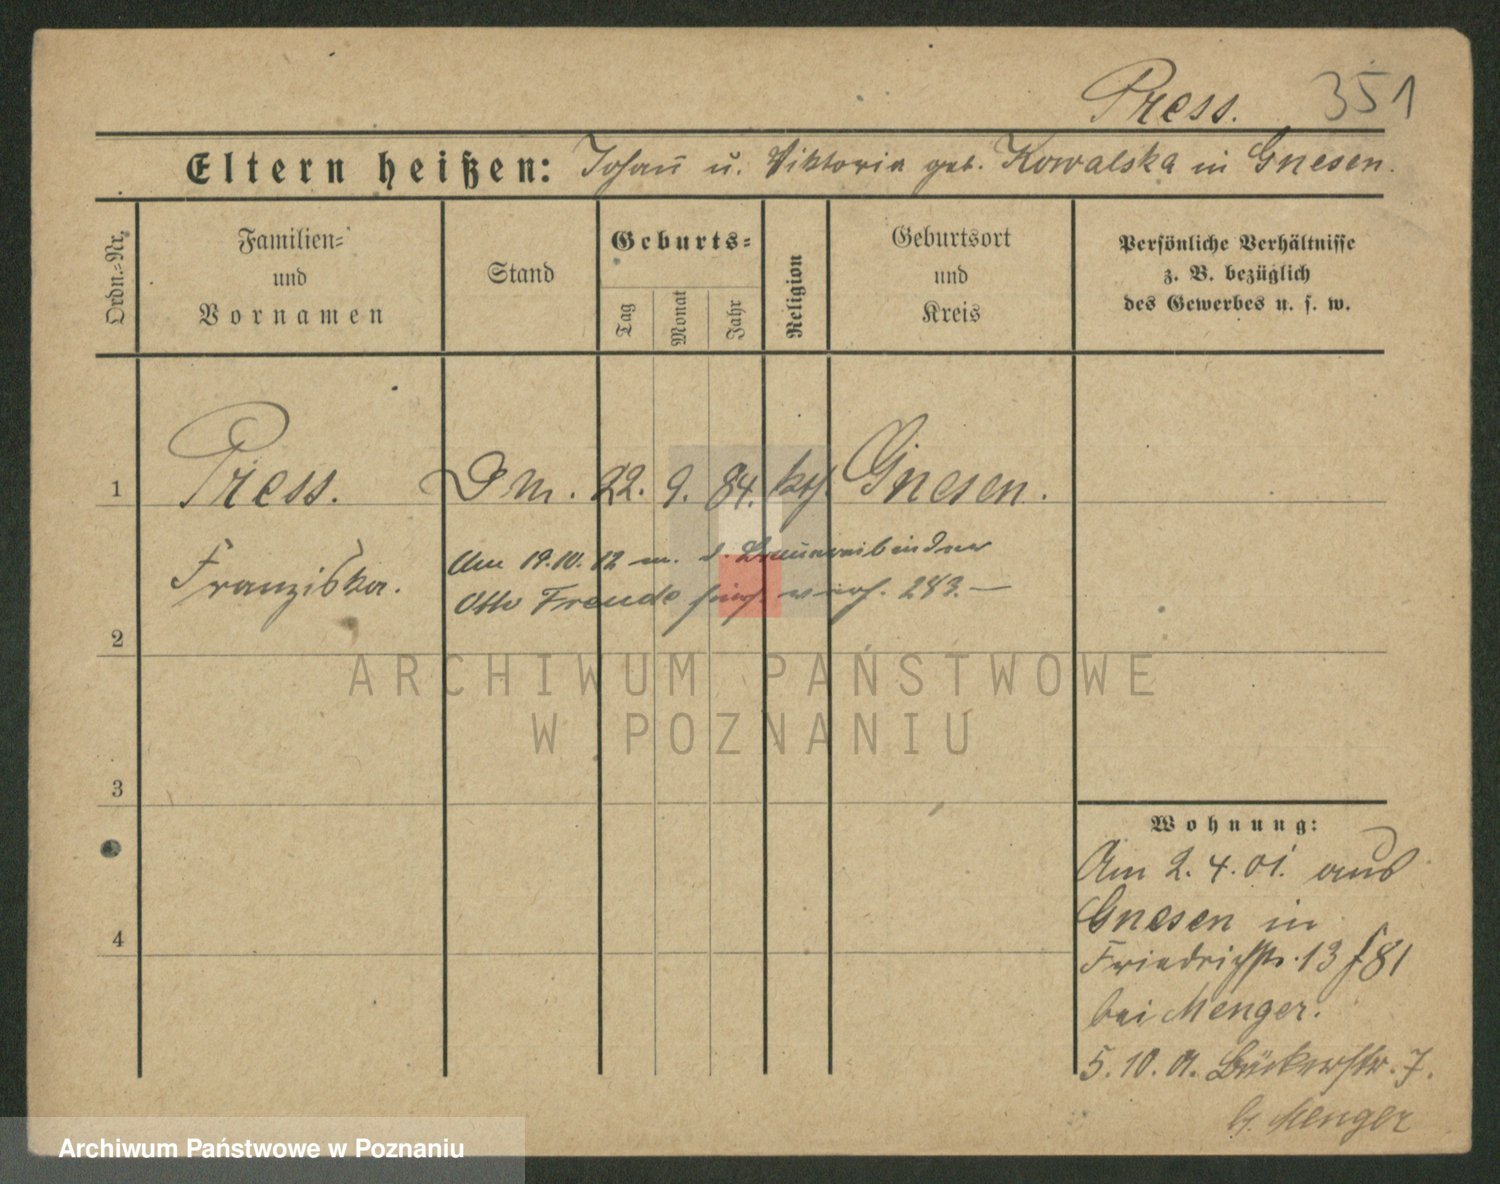 Press. 351
Eltern heißen: Johan̄ u. Viktoria geb. Kowalska in Gnesen.
Ordn.-Nr.
Familien-
und
Vornamen
Stand
Geburts-
Tag
Monat
Jahr
Religion
Geburtsort
und
Kreis
Persönliche Verhältnisse
z. B. bezüglich
des Gewerbes u. s. w.
1 Press. Dm. 22. 9. 84. kth. Gnesen.
Am 19.10.12 m. d.
Franziska.
Otto Freude 283.—
2
ARCHIWUM PAŃSTWOWE
W POZNANIU
3
Wohnung:
Am 2.4.01. aus
Gnesen in
4
Friedrichstr. 13 f 81
bei Menger.
5.10.01. Bäckerstr. 7.
b. Menger
Archiwum Państwowe w Poznaniu